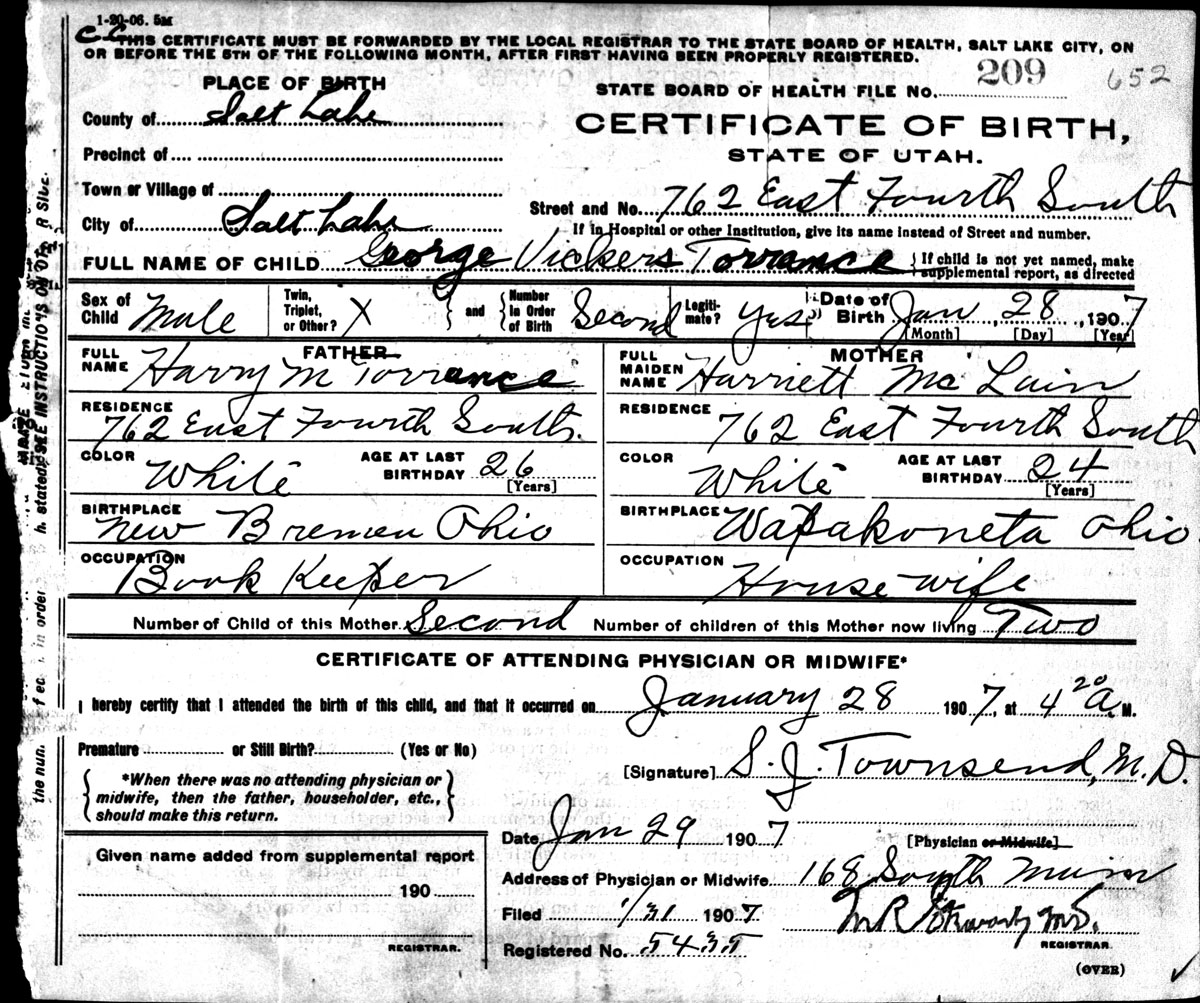 1-20-06. 5M
C.C. THIS CERTIFICATE MUST BE FORWARDED BY THE LOCAL REGISTRAR TO THE STATE BOARD OF HEALTH, SALT LAKE CITY, ON
OR BEFORE THE 5TH OF THE FOLLOWING MONTH, AFTER FIRST HAVING BEEN PROPERLY REGISTERED.
PLACE OF BIRTH
STATE BOARD OF HEALTH FILE No. 209 652
County of Salt Lake
CERTIFICATE OF BIRTH,
STATE OF UTAH.
Precinct of
Town or Village of
Street and No. 762 East Fourth South
City of Salt Lake
If in Hospital or other Institution, give its name instead of Street and number.
FULL NAME OF CHILD George Vickers Torrance { If child is not yet named, make supplemental report, as directed
Sex of Child Male Twin, Triplet, or Other? X } and { Number in Order of Birth Second Legiti-mate? Yes Date of Birth Jan, 28, 1907
[Month] [Day] [Year]
FATHER MOTHER
FULL NAME Harry M Torrance FULL MAIDEN NAME Harriett Mc Lain
RESIDENCE 762 East Fourth South. RESIDENCE 762 East Fourth South
COLOR White AGE AT LAST BIRTHDAY 26 [Years] COLOR White AGE AT LAST BIRTHDAY 24 [Years]
BIRTHPLACE New Bremen Ohio BIRTHPLACE Wapakoneta Ohio
OCCUPATION Book Keeper OCCUPATION House wife
Number of Child of this Mother Second Number of children of this Mother now living Two
CERTIFICATE OF ATTENDING PHYSICIAN OR MIDWIFE*
I hereby certify that I attended the birth of this child, and that it occurred on January 28 1907, at 4 20 a. M.
Premature or Still Birth? (Yes or No)
[Signature] S. J. Townsend, M. D.
{ *When there was no attending physician or
midwife, then the father, householder, etc.,
should make this return. }
Date Jan 29 1907 [Physician or Midwife]
Given name added from supplemental report
190
REGISTRAR.
Address of Physician or Midwife 168 South Main
Filed 1/31 1907 M R Stewart M.D.
Registered No. 5435 REGISTRAR.
(OVER)
SEE INSTRUCTIONS ON